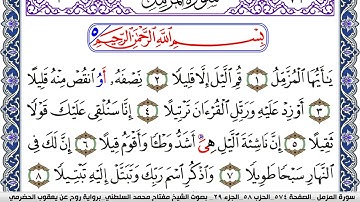 سورة المزمل
بِسْمِ اللَّهِ الرَّحْمَٰنِ الرَّحِيمِ
يَٰأَيُّهَا الْمُزَّمِّلُ ١ قُمِ الَّيْلَ إِلَّا قَلِيلًا ٢ نِصْفَهُۥ أَوُ انقُصْ مِنْهُ قَلِيلًا
٣ أَوْ زِدْ عَلَيْهِ وَرَتِّلِ الْقُرْءَانَ تَرْتِيلًا ٤ إِنَّا سَنُلْقِي عَلَيْكَ قَوْلًا
ثَقِيلًا ٥ إِنَّ نَاشِئَةَ الَّيْلِ هِيَ أَشَدُّ وَطْـًٔا وَأَقْوَمُ قِيلًا ٦ إِنَّ لَكَ فِي
النَّهَارِ سَبْحًا طَوِيلًا ٧ وَاذْكُرِ اسْمَ رَبِّكَ وَتَبَتَّلْ إِلَيْهِ تَبْتِيلًا ٨
سورة المزمل - الصفحة ٥٧٤ - الحزب ٥٨ - الجزء ٢٩ - بصوت الشيخ مفتاح محمد السلطني - برواية روح عن يعقوب الحضرمي